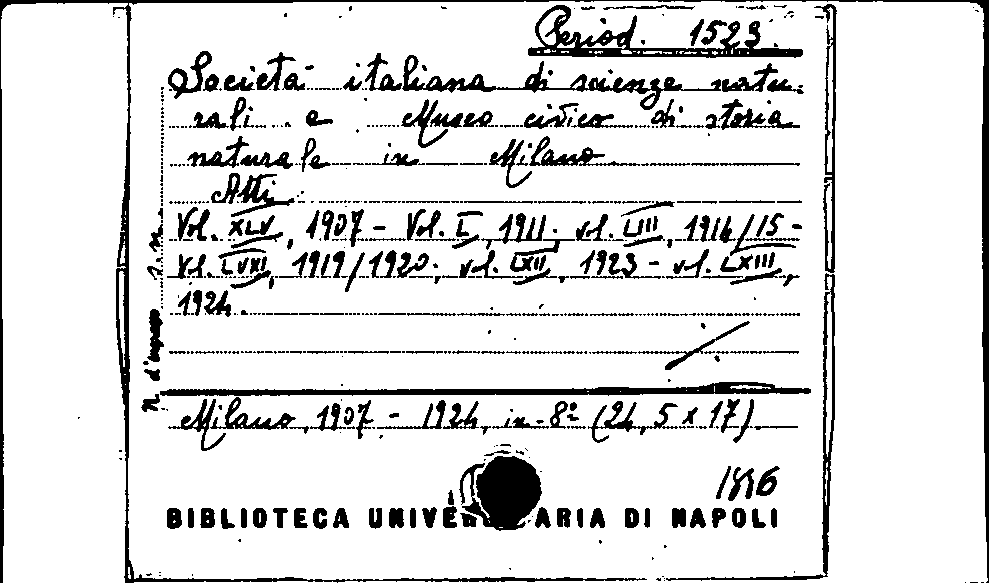 Period. 1523.
Società italiana di scienze natu-
rali e Museo civico di storia
naturale in Milano.
Atti.
Vol. XLV, 1907 - Vol. L, 1911; vol. LIII, 1914/15 -
vol. LVIII, 1919/1920; vol. LXII, 1923 - vol. LXIII,
1924.
N. d'ingresso
Milano, 1907 - 1924, in-8º (24,5 x 17).
BIBLIOTECA UNIVER ARIA DI NAPOLI